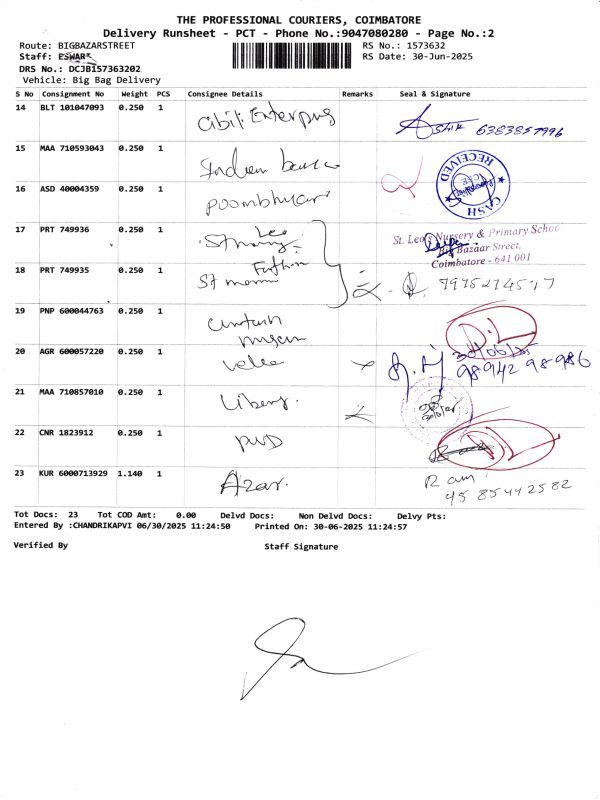 THE PROFESSIONAL COURIERS, COIMBATORE
Delivery Runsheet - PCT - Phone No.:9047080280 - Page No.:2
Route: BIGBAZARSTREET
RS No.: 1573632
Staff: ESWAR
RS Date: 30-Jun-2025
DRS No.: DCJB157363202
Vehicle: Big Bag Delivery
S No Consignment No Weight PCS Consignee Details Remarks Seal & Signature
14 BLT 101047093 0.250 1 6383857996
15 MAA 710593043 0.250 1 Indian RECEIVED CASH
16 ASD 40004359 0.250 1
17 PRT 749936 0.250 1 Leo
St. Leo's Nursery & Primary School
Big Bazaar Street,
Coimbatore - 641 001
18 PRT 749935 0.250 1
19 PNP 600044763 0.250 1
20 AGR 600057220 0.250 1 98942 98986
21 MAA 710857010 0.250 1
22 CNR 1823912 0.250 1 PWD
23 KUR 6000713929 1.140 1 Azar. Ram
95 85442582
Tot Docs: 23 Tot COD Amt: 0.00 Delvd Docs: Non Delvd Docs: Delvy Pts:
Entered By :CHANDRIKAPVI 06/30/2025 11:24:50 Printed On: 30-06-2025 11:24:57
Verified By Staff Signature